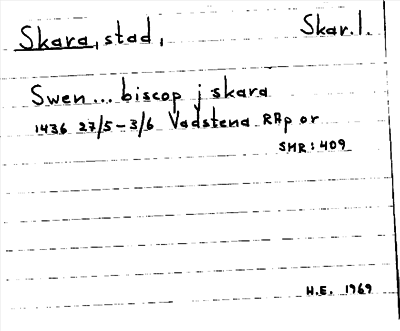 Skara, stad, Skar.l.
Swen... biscop j skara
1436 27/5-3/6 Vadstena RAp or
SMR: 409
H.E. 1969